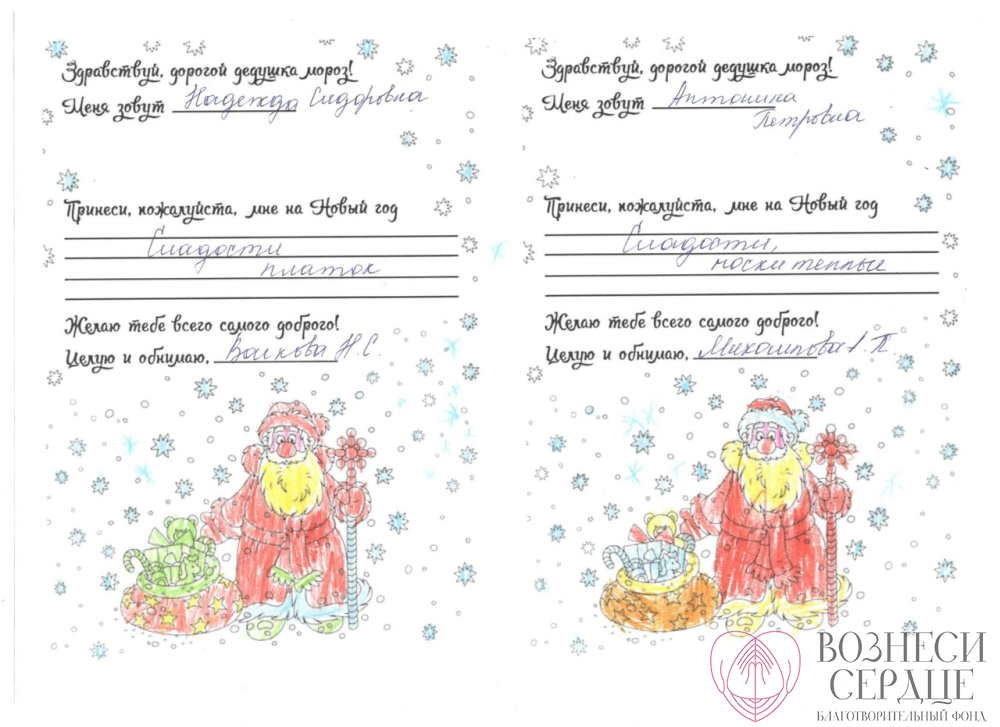 Здравствуй, дорогой дедушка мороз!
Меня зовут Надежда Сидоровна
Принеси, пожалуйста, мне на Новый год
Сладости
платок
Желаю тебе всего самого доброго!
Целую и обнимаю, Волкова Н.С.
Здравствуй, дорогой дедушка мороз!
Меня зовут Антонина
Петровна
Принеси, пожалуйста, мне на Новый год
Сладости,
носки теплые
Желаю тебе всего самого доброго!
Целую и обнимаю, А.П.
ВОЗНЕСИ
СЕРДЦЕ
БЛАГОТВОРИТЕЛЬНЫЙ ФОНД